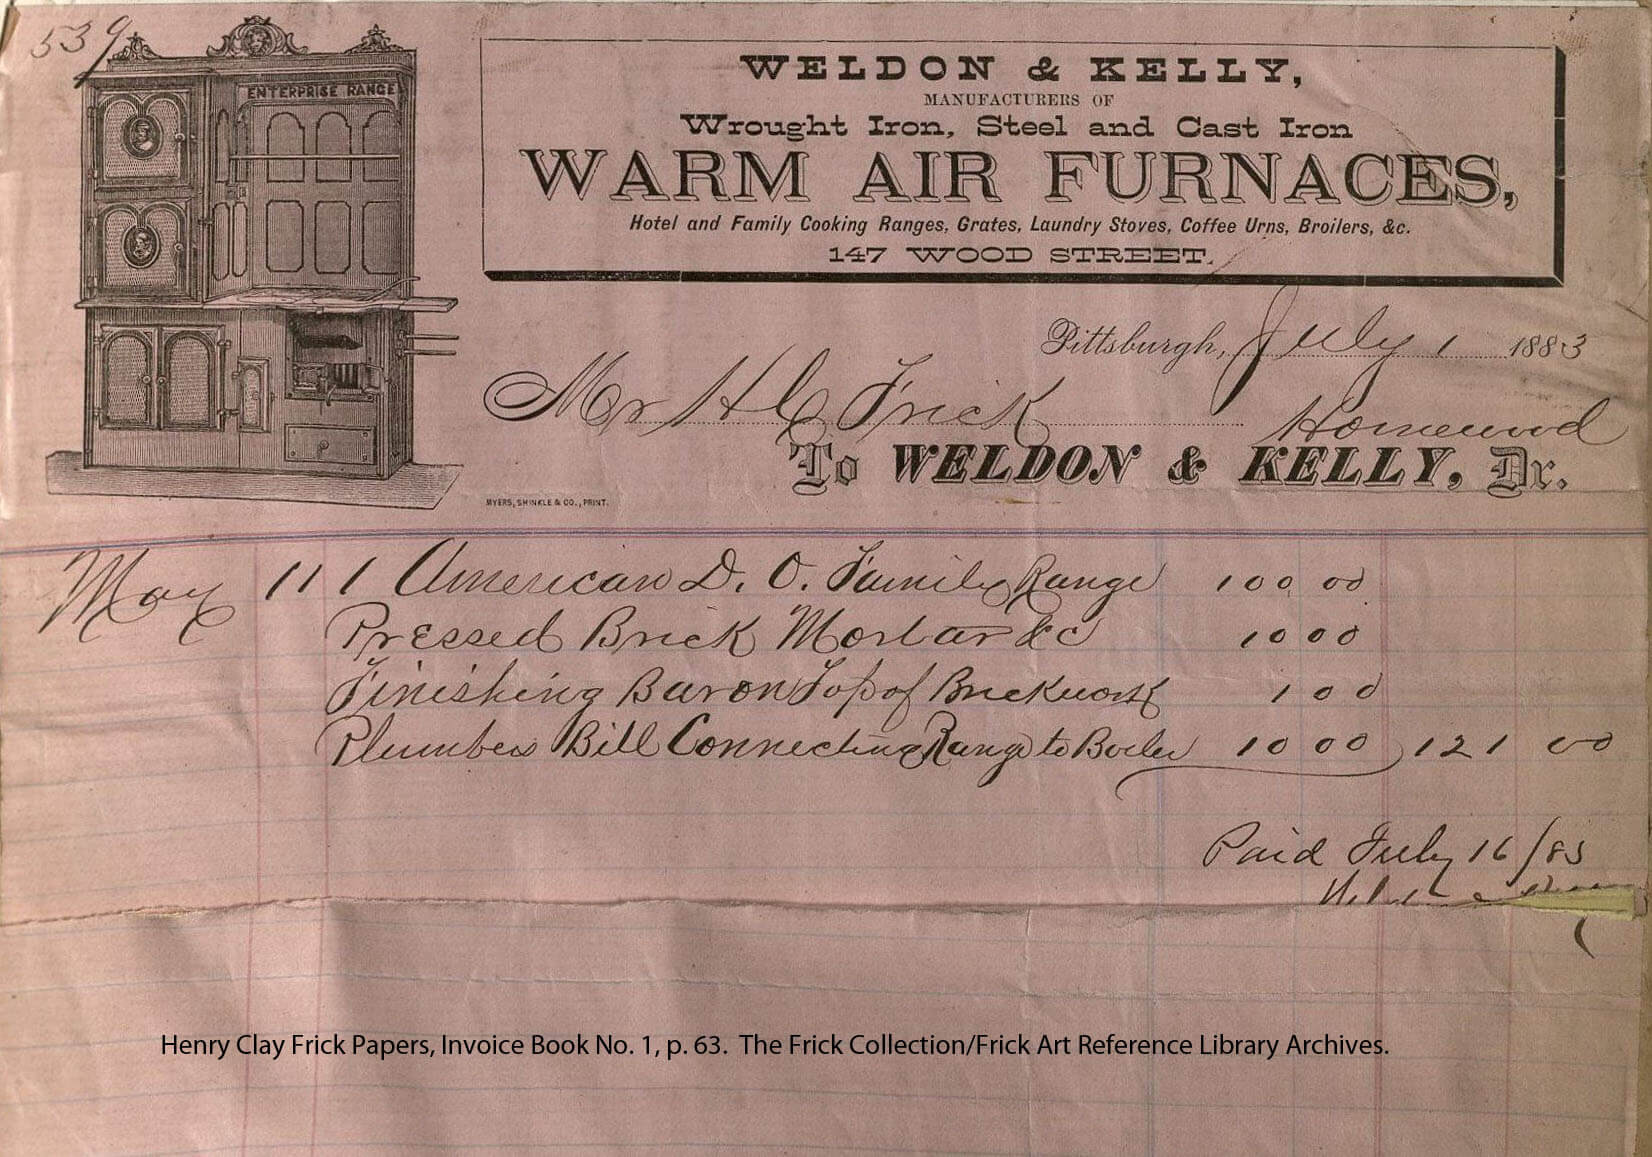 539
ENTERPRISE RANGE
WELDON & KELLY,
MANUFACTURERS OF
Wrought Iron, Steel and Cast Iron
WARM AIR FURNACES,
Hotel and Family Cooking Ranges, Grates, Laundry Stoves, Coffee Urns, Broilers, &c.
147 WOOD STREET.
Pittsburgh, July 1 1883
Mr H C Frick Homewood
To WELDON & KELLY, Dr.
MYERS, SHINKLE & CO., PRINT.
May 11 1 American D. O. Family Range 100 00
Pressed Brick Mortar &c 10 00
Finishing Bar on Top of Brickwork 1 00
Plumbers Bill Connecting Range to Boiler 10 00 121 00
Paid July 16/83
Henry Clay Frick Papers, Invoice Book No. 1, p. 63. The Frick Collection/Frick Art Reference Library Archives.